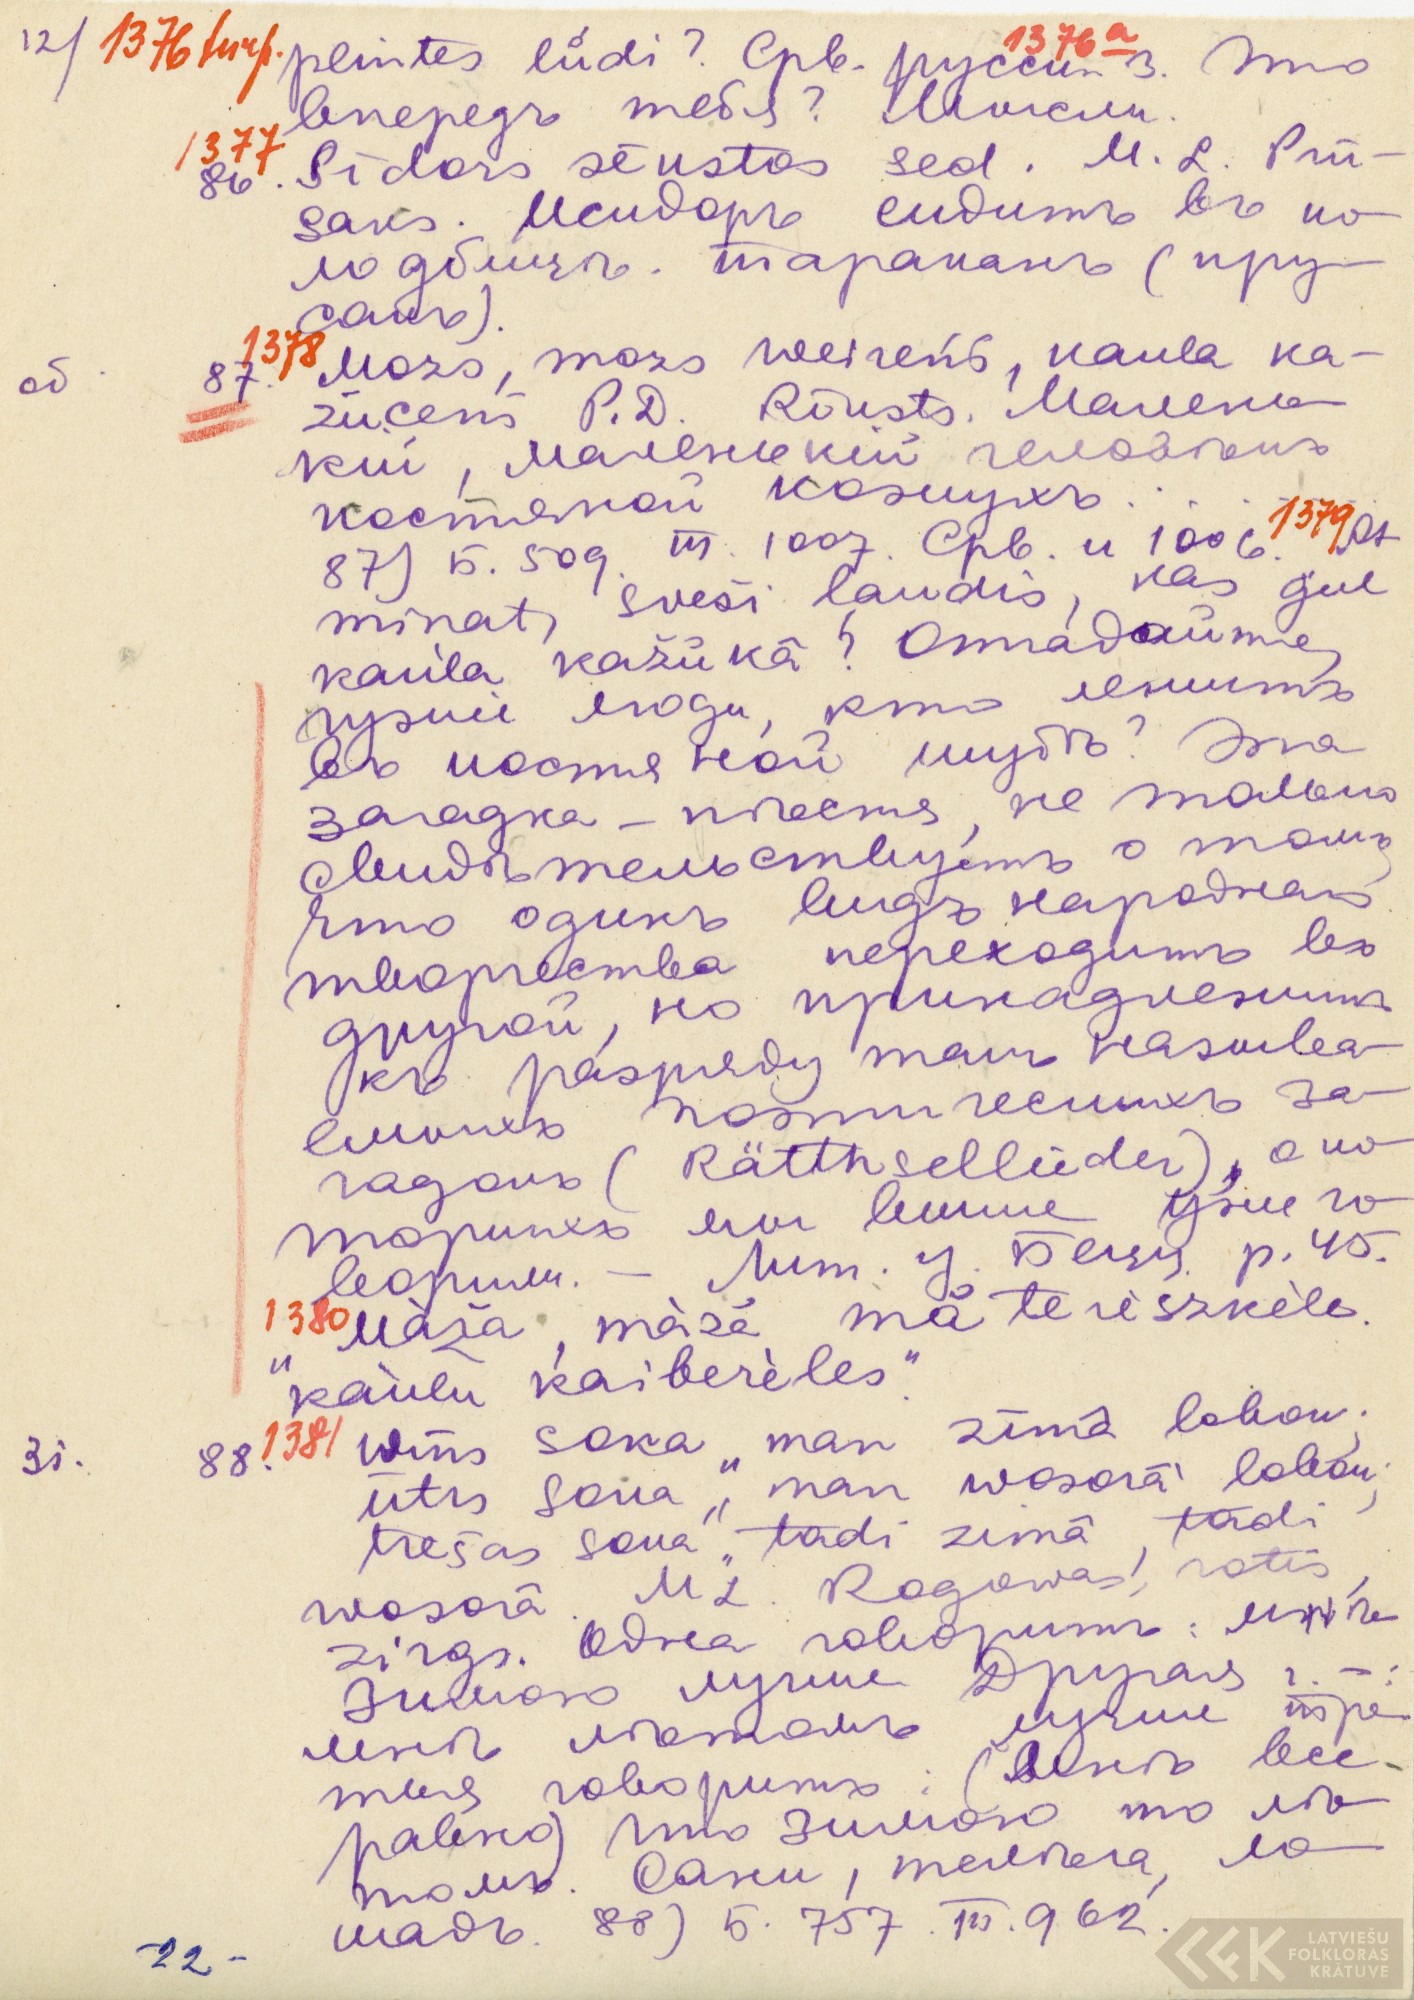 12/ 1376 turp. pleintes lůdi? Срв. русск. 1376a З. Что
впередъ тебя? Мысли.
1377
86. Sīdors sēustas sed. M. L. Prū-
saks. Исидоръ сидитъ въ ко-
лодбищѣ. Тараканъ (пру-
сакъ).
сб 87. 1378 Mozs, mozs weireńš, kaula ka-
žūceńš P. D. Rīusts. Малень-
кій, маленькій человѣкъ
костяной кожухъ . . . . .
87) Б. 509. III. 1007. Срв. и 1006. 1379 At
minat, sveši laudis, kas gul
kaula kažūkā? Отгадайте,
чужіе люди, кто лежитъ
въ костяной шубѣ? Эта
загадка – пѣсня, не только
свидѣтельствуетъ о томъ,
что одинъ видъ народнаго
творчества переходитъ въ
другой, но принадлежитъ
къ разряду такъ называ-
емыхъ поэтическихъ за-
гадокъ (Rätthsellieder), о ко-
торыхъ мы выше уже го-
ворили. – Лит. у Бецц. p. 45.
1380 Màža, màžè mà terèszkèle.
"kàulu kaiberèles".
Зі. 88. 1381 Wīns soka „man zīmā lobow;
ūtrs soka „man wosorā lobow;
trešas soka „tadi zimā, tadi
wosorā. M. L. Rogowas, rotis,
zirgs. Одна говоритъ: мнѣ
Зимою лучше Другая г. –:
мнѣ лѣтомъ лучше тре-
тья говоритъ: (мнѣ все-
равно) что зимою то лѣ-
томъ. Сани, телѣга, ло-
шадь. 88) Б. 757. III. 962.
-22-
LATVIEŠU
FOLKLORAS
KRĀTUVE